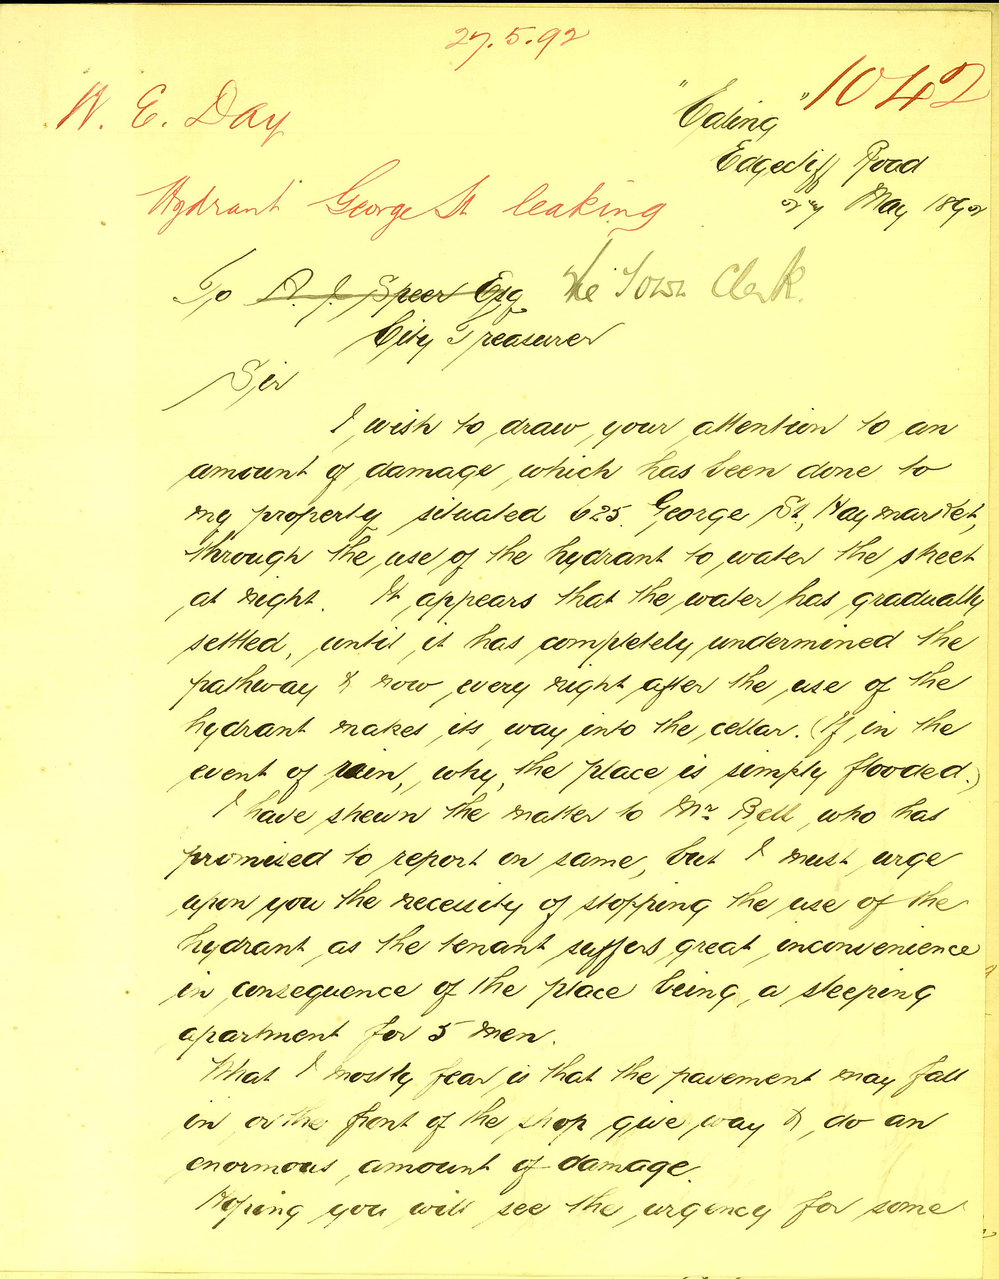 27.5.92
1042
W. E. Day
"Ealing"
Edgecliff Road
Hydrant George St leaking
May 1892
To A. J. Speer Esq The Town Clerk.
City Treasurer
Sir
I wish to draw your attention to an
amount of damage which has been done to
my property situated 625 George St, Haymarket,
through the use of the hydrant to water the street
at night. It appears that the water has gradually
settled, until it has completely undermined the
pathway & now every night after the use of the
hydrant makes its way into the cellar. (If in the
event of rain, why, the place is simply flooded.)
I have shewn the matter to Mr Bell, who has
promised to report on same, but I must urge
upon you the necessity of stopping the use of the
hydrant as the tenant suffers great inconvenience
in consequence of the place being a sleeping
apartment for 5 men.
What I mostly fear is that the pavement may fall
in or the front of the shop give way & do an
enormous amount of damage.
Hoping you will see the urgency for some